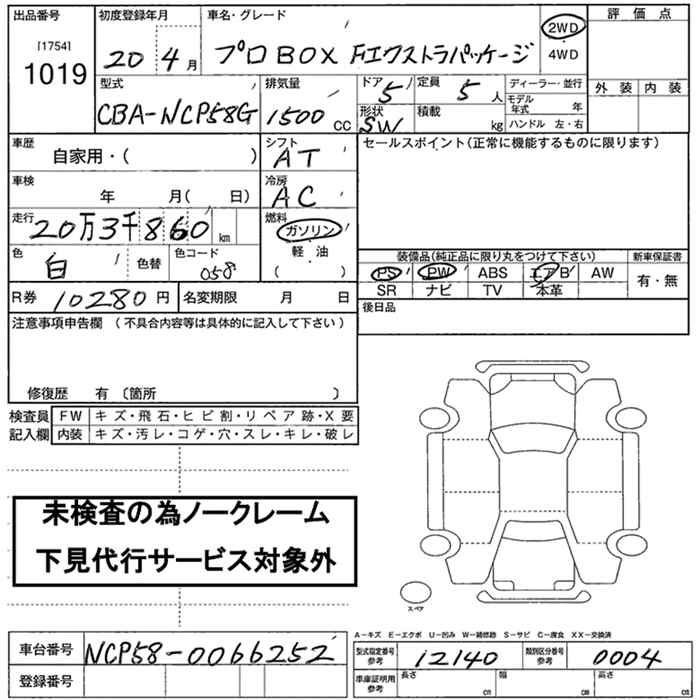 出品番号 初度登録年月 車名・グレード 評価点
[1754]
1019
20年4月 プロBOX Fエクストラパッケージ
2WD
4WD
外装 内装
型式 排気量 ドア 定員 ディーラー・並行
CBA-NCP58G 1500 CC 5 5 人
モデル年式 年
形状 積載
SW kg ハンドル 左・右
車歴 シフト セールスポイント(正常に機能するものに限ります)
自家用・( ) AT
車検 冷房
年 月( 日) AC
走行 燃料
20万3千860 km ガソリン
軽・油
( )
色 色替 色コード 装備品(純正品に限り丸をつけて下さい) 新車保証書
白 058
PS PW ABS エアB AW 有・無
SR ナビ TV 本革
R券 10280円 名変期限 月 日 後日品
注意事項申告欄 (不具合内容等は具体的に記入して下さい)
修復歴 有 〔箇所 〕
検査員 FW キズ・飛石・ヒビ割・リペア跡・X要
記入欄 内装 キズ・汚レ・コゲ・穴・スレ・キレ・破レ
未検査の為ノークレーム
下見代行サービス対象外
スペア
A-キズ E-エクボ U-凹み W-補修跡 S-サビ C-腐食 XX-交換済
車台番号 NCP58-0066252
型式指定番号 参考 12140 類別区分番号 参考 0004
登録番号
車庫証明用 参考 長さ cm 幅 cm 高さ cm